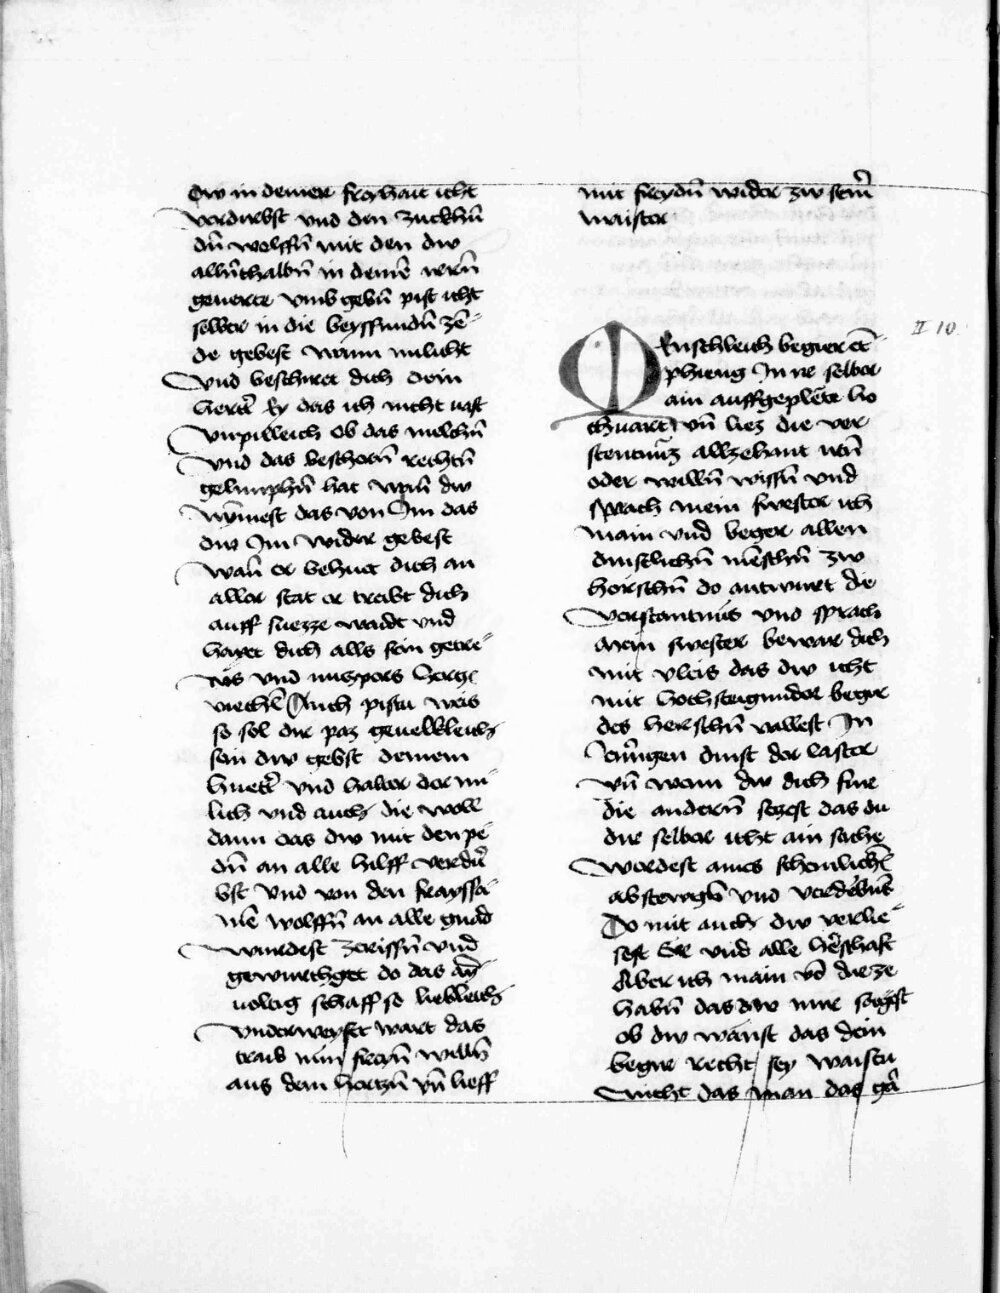 Dw in deiner freyhait icht
verdirbst vnd den zuckhn̄
dn̄ wolffn̄ mit den dw
alln̄thalbn̄ in deinē vern̄
geuerte vmb gebn̄ pist icht
selber in die beyssundn̄ zē
de gebest wann milicht
vnd beschiret dich dein
herr̄ Ey das ich nicht vast
vnpilleich ob das melchn̄
vnd das beschorn̄ rechtn̄
gelimphn̄ hat wen̄ dw
nȳmest das von Im das
dw Im wider gebest
Wan̄ er behuet dich an
aller stat er treibt dich
auff suezze waidt vnd
hayet dich alls sein getre
ws vnd nuczpers herge
viechl̄ Auch pistu wers
so sol dir paz geuelkleich
sein dw gebst deinem
huett̄ vnd halter der mi
lich vnd auch die woll
dann das dw mit den pe
dn̄ an alle hilff verdir̄
bst vnd von den frayssa
mē wolffn̄ an alle gnad
wurdest zerissn̄ vnd
gewurchget do das ain̄
uoltig schaff so liebleich
vnderweyset wart das
traib mit freyn̄ willn̄
aus dem hertzn̄ vn̄ lieff
mit freydn̄ wider zw seim̄
maister
II 10.
MEnschleich begier ēt
phieng In ir selber
ain auffgeplēte ho
chuart vn̄ liez die ver
stentnūz allzehant irn̄
oder willn̄ wissn̄ vnd
sprach mein swester ich
main vnd beger allen
dinstlichn̄ mēschn̄ zw
herschn̄ do antwurt die
verstantnus vnd sprach
mein swester bewar dich
mit vleis das dw icht
mit hochsteigunder begir
des herschn̄ vallest In
ewigen dinst der laster
vn̄ wenn dw dich fure
die andern̄ seczest das du
dir selber icht ain sache
werdest aines schemlichn̄
absteign̄ vnd verdebn̄s
Do mit auch dw verlie
sest Er vnd alle her̄schaft
Aber ich main vō dieze
habn̄ das dw mir sagst
ob dw wanst das dein
begir recht sey waistu
nicht das man das gar̄